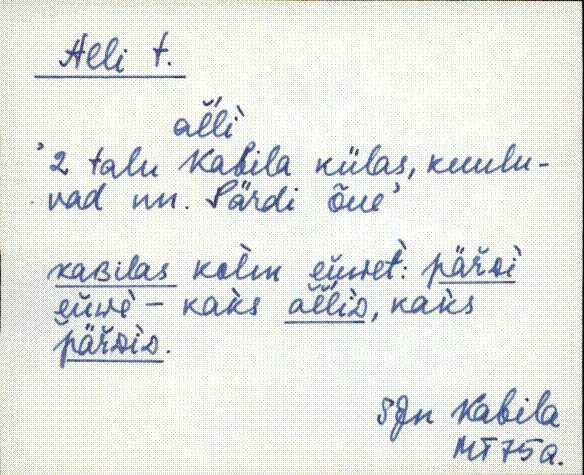 Alli t.
al̆l̀i
'2 talu Kabila külas, kuulu-
vad nn. Pärdi õue'
kaʙilas kolm eŭwet: pär̆ᴅi
eŭwè – kaks al̆l̆iᴅ, kaks
pär̆ᴅiᴅ.
SJn Kabila
MT 75a.